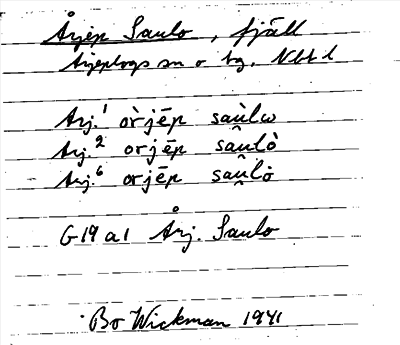 Årjēp Saulo, fjäll
Arjeplogs sn o tg. Nbt l
Arj.¹ òrjēp saùlω
Arj.² orjēp sau̯lò
Arj.⁶ orjēp sau̯lò
G 19 a 1 Årj. Saulo
Bo Wickman 1941